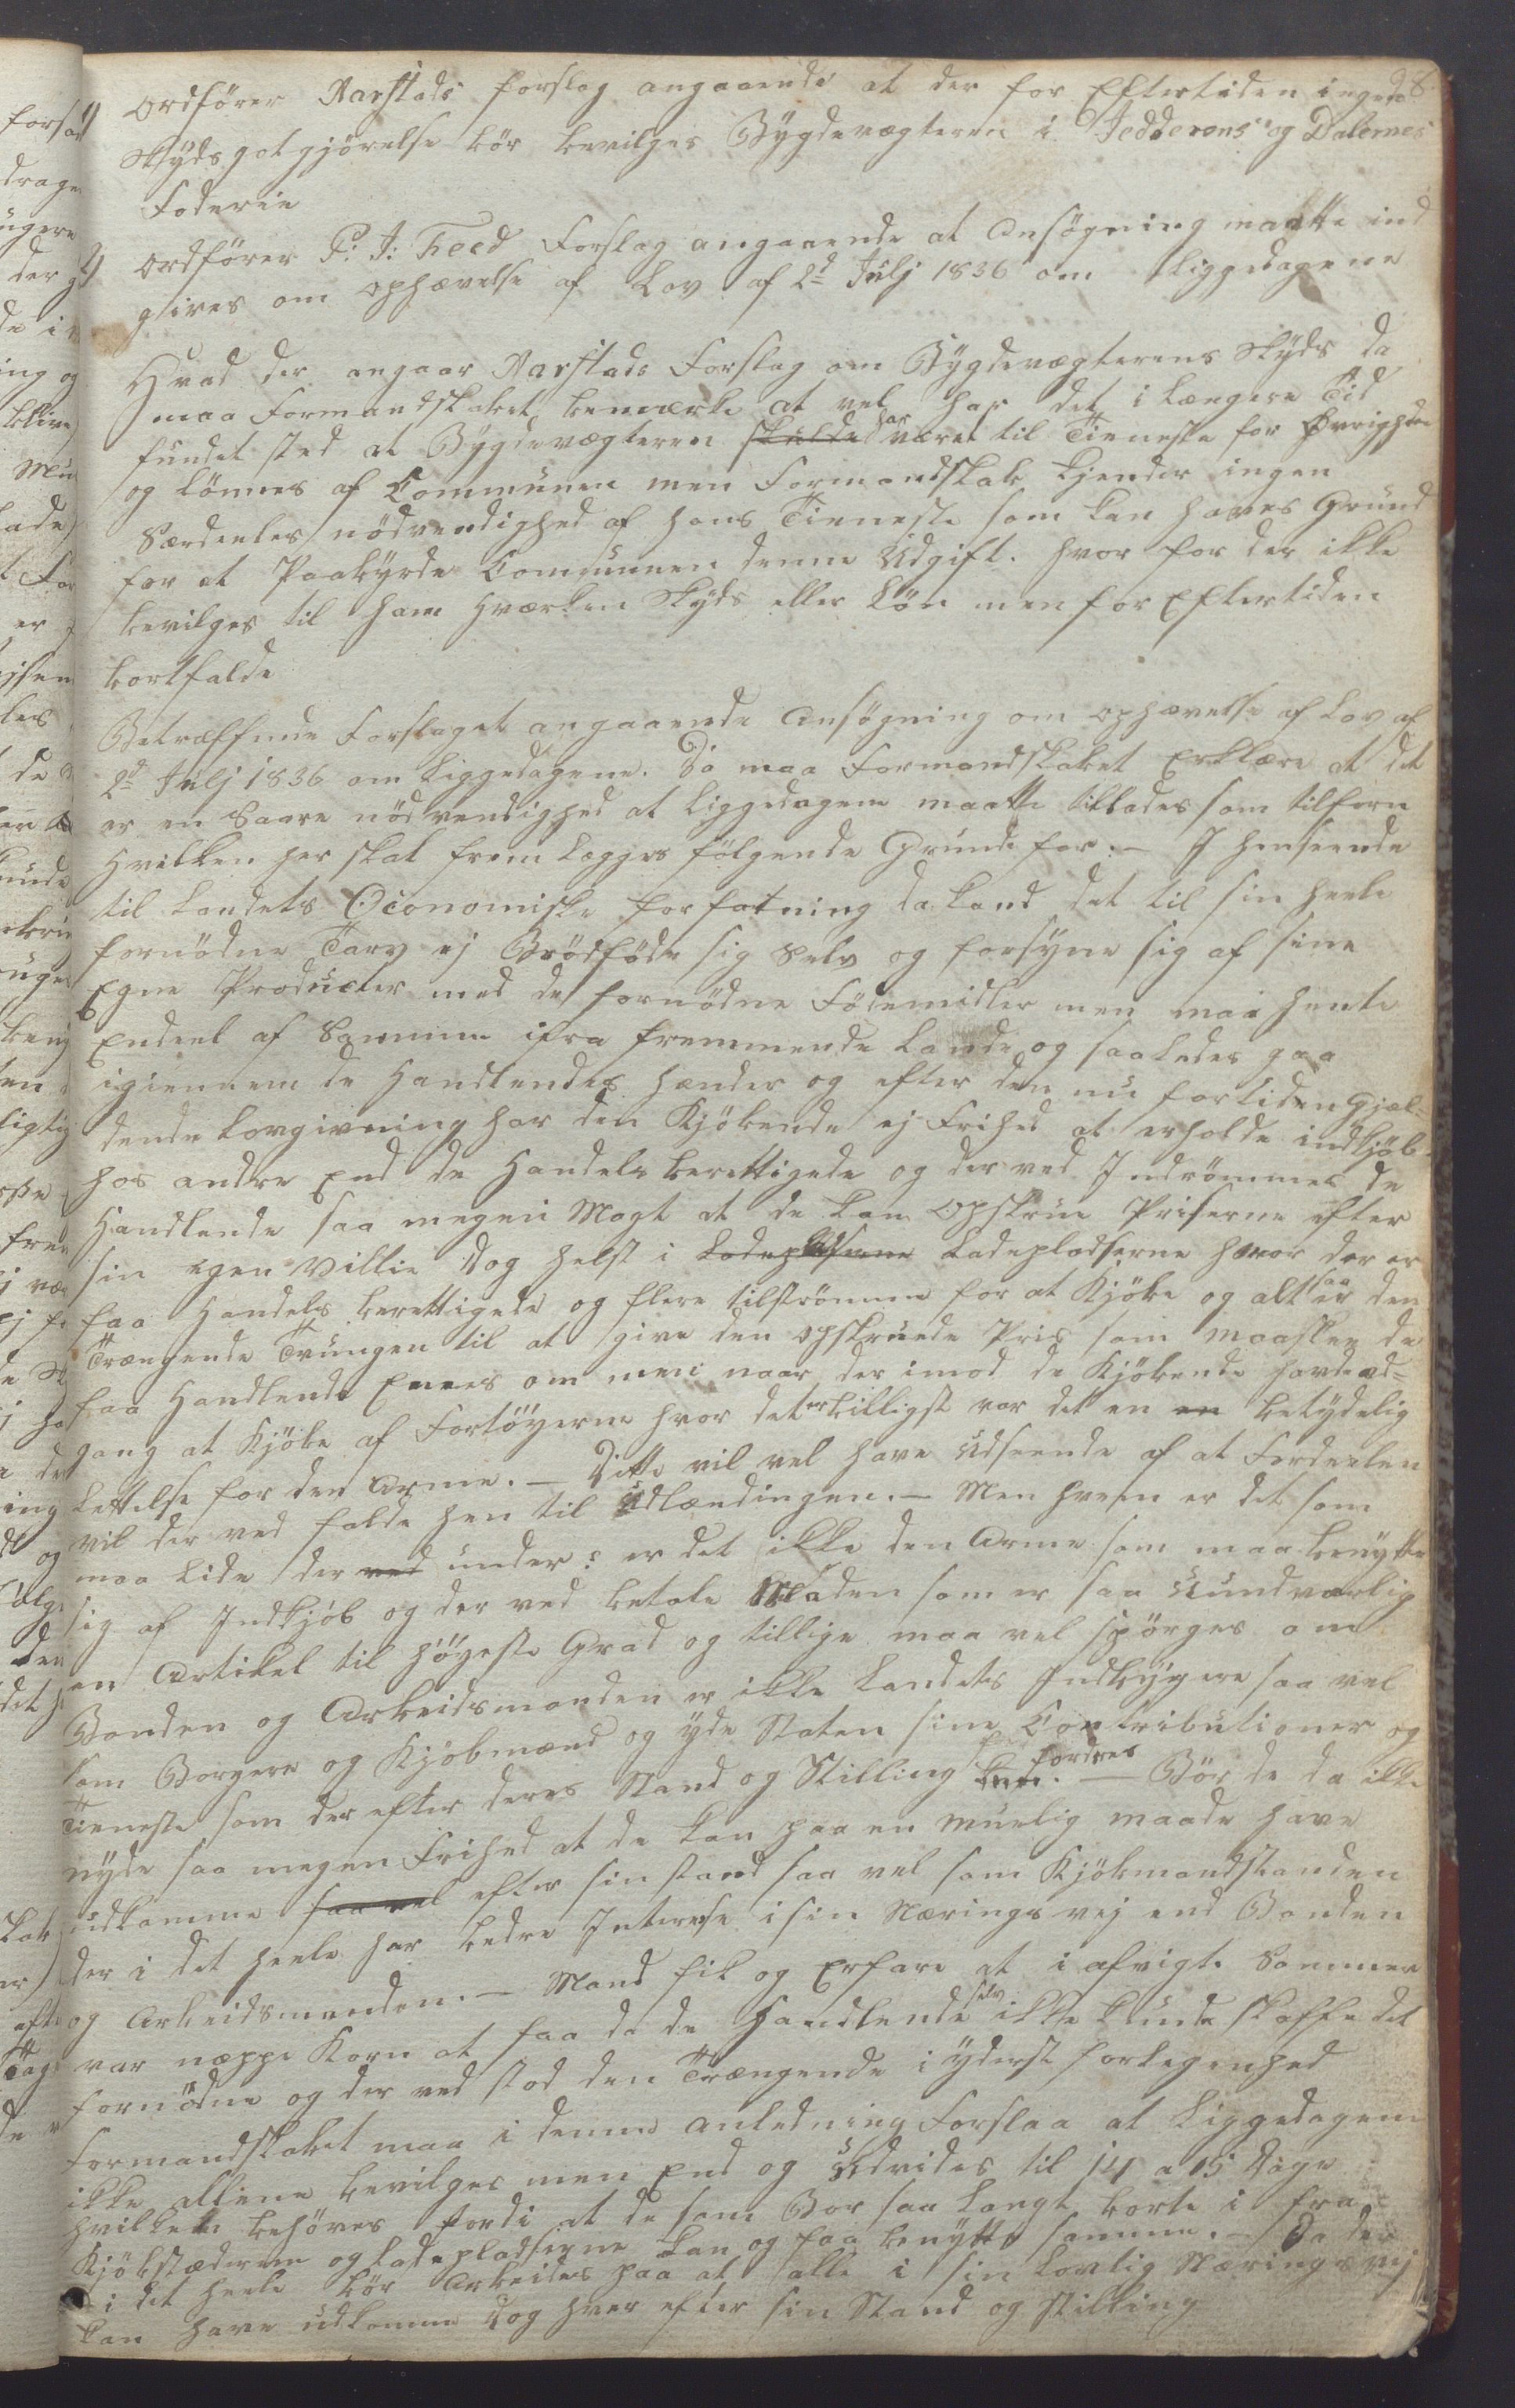 28
1) Ordfører Aarstads forslag angaaende at der for Eftertiden ingen
Skydsgotgjørelse bør bevilges Bygdevægteren i Jedderens og Dalernes
Foderie
2) Ordfører P. J. Feed Forslag angaaende at Ansøgning maatte ind
gives om Ophævelse af Lov af 2d Julj 1836 om Liggedagene
Hvad der angaar Aarstads Forslag om Bygdevægterens Skyds da
maa Formandskabet bemærke at vel har det i længere Tid
fundet sted at Bygdevægteren skulde har været til Tieneste for Øvrighden
og lønnes af Communen men Formandskab kjender ingen
Særdeeles nødvendighed af hans Tieneste som kan haves Grund
for at Paabyrde Communen denne Udgift. hvor for der ikke
bevilges til ham hværken Skyds eller Løn men for Eftertiden
bortfalde
Betræffende Forslaget angaaende Ansøgning om Ophævelse af Lov af
2d Julj 1836 om Liggedagene. Da maa Formandskabet Erklære at det
er en Saare nødvendighed at Liggedagene maatte tillades som tilforn
Hvilken her skal frem Legges følgende Grunde for. – I henseende
til Landets Oconomiske forfatning da Land det til sin heele
fornødne Tarv ej Brødføde sig Selv og forsyne sig af sine
Egne Producter med de fornødne Fødemidler men maa hente
Endeel af Samme ifra fremmende Lande og saaledes gaa
igiennem de Handlendes Hænder og efter den nu fortiden Gjæl-
dende Lovgivning har den Kjøbende ej Frihed at erholde indkjøb
hos andre End de Handels berettigede og derved Indrømmes de
Handlende saa megen Magt at de kan Opskrue Priserne efter
sin egen Villie Dog helst i Ladepladserne Ladepladserne hvor der er
faa Handels berettigede og flere tilstrømme for at Kjøbe og altsaa er den
Trængende Tvungen til at give den opskruede Pris som maaskee de
faa Handlende Enes om men naar der imod de Kjøbende havde ad-
gang at Kjøbe af Fortøyerne hvor det er billigst var det en en betydelig
Lettelse for den Arme. – Dette vil vel have Udseende af at Fordeelen
vil der ved falde hen til Udlændingen. – Men hvem er det som
maa lide der ved under? er det ikke den Arme som maa benytte
sig af Indkjøb og der ved betale Maden som er saa Uundværlig
en Artikel til høyeste Grad og tillige maa vel spørges om
Bonden og Arbeidsmanden er ikke Landets Indbyggere saa vel
som Borgere og Kjøbmænd og yde Staten sine Contributioner og
Tieneste som der efter deres Stand og Stilling fordres. – Bør de da ikke
nyde saa megen Frihed at de kan paa en muelig maade have
udkomme saa vel efter sin stand saa vel som Kjøbmandstanden
der i det heele har bedre Interesse i sin Næringsvej end Bonden
og Arbeidsmanden. – Mand fik og Erfare at i afvigte Sommer
var neppe Korn at faa da de Handlende selv ikke kunde skaffe det
fornødne og der ved stod den Trængende i yderste forlegenhed
Formandskabet maa i denne anledning Forslaa at Liggedagene
ikke alliene bevilges men End og Udvides til 14 a 15 Dage
hvilket behøves fordi at de som Bor saa langt borte i fra
Kjøbstæderne og Ladepladserne kan og faa benytte samme. – Da der
i det heele bør Arbeides paa at alle i sin Lovlig Næringsvej
kan have udkomme Dog hver efter sin Stand og Stilling